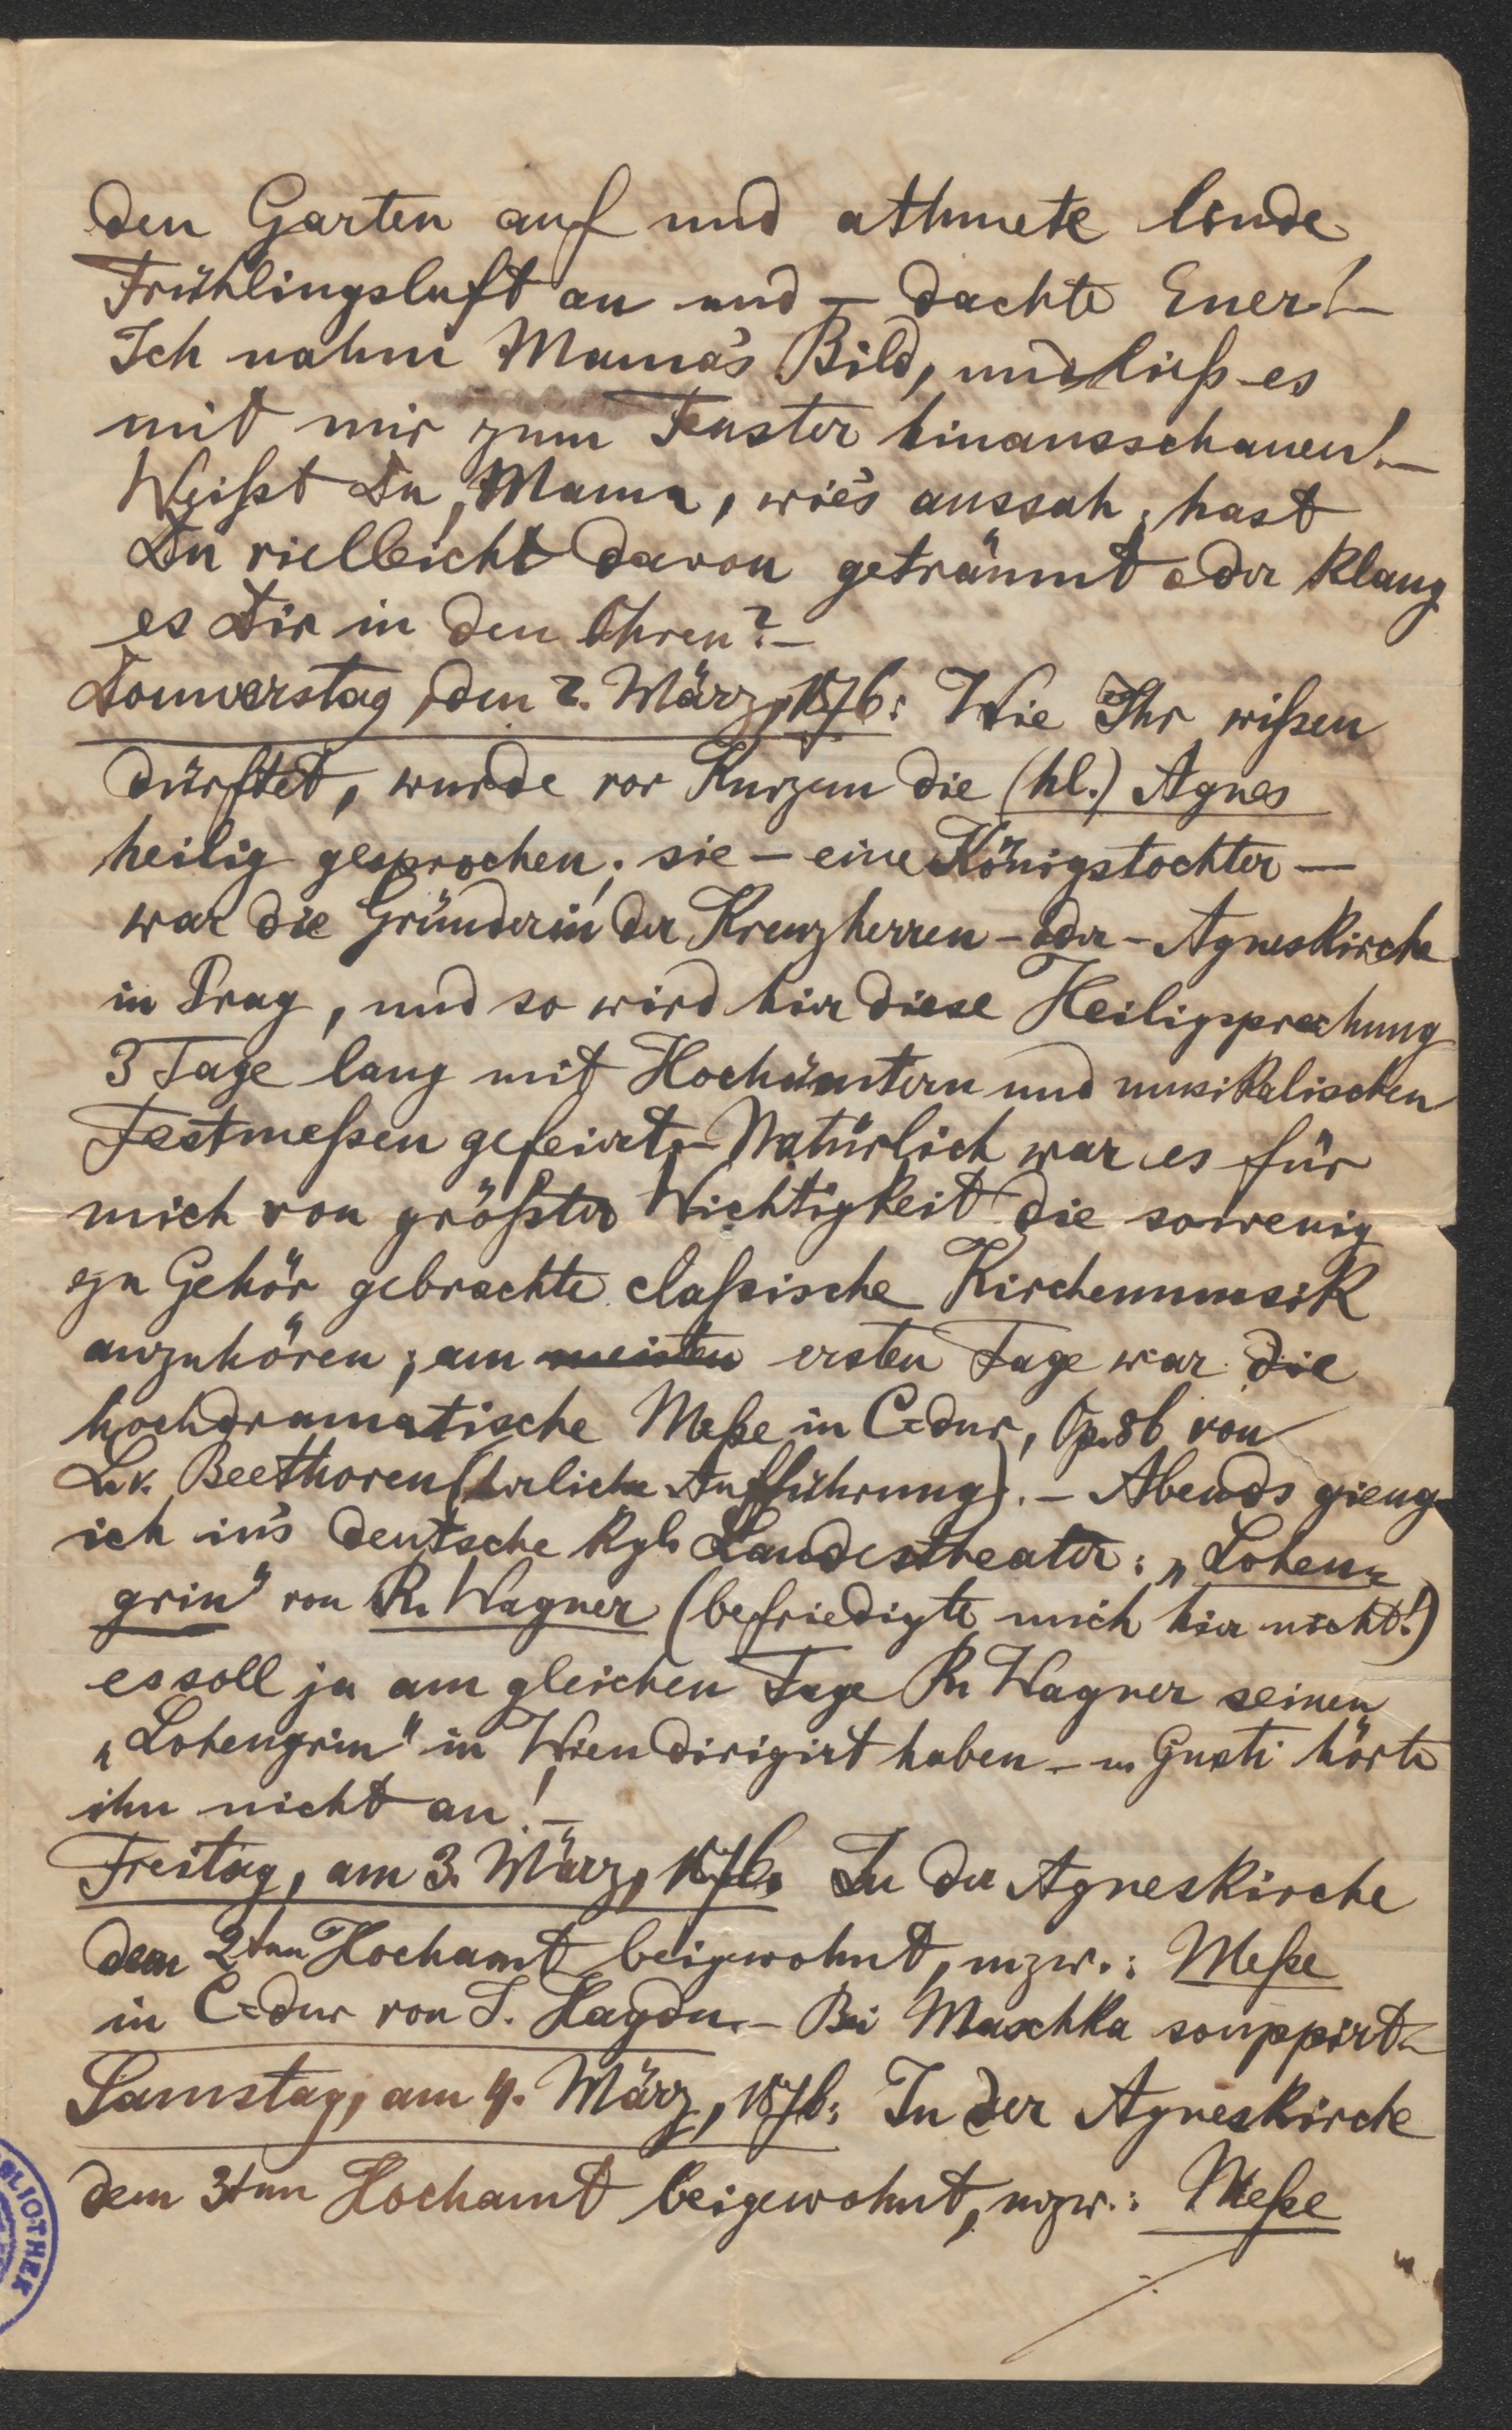 den Garten auf und athmete linde
Frühlingsluft an und – dachte Euer! –
Ich nahm Mama's Bild, und ließ es
mit mir zum Fenster hinausschauen! –
Weißt Du, Mama, wie's aussah, hast
Du vielleicht davon geträumt oder klang
es Dir in den Ohren? –
Donnerstag, den 2. März, 1876: Wie Ihr wißen
dürftet, wurde vor Kurzem die (hl.) Agnes
heilig gesprochen; sie – eine Königstochter –
war die Gründerin der Kreuzherren – oder – Agneskirche
in Prag, und so wird hier diese Heiligsprechung
3 Tage lang mit Hochämtern und musikalischen
Festmeßen gefeiert. – Natürlich war es für
mich von größter Wichtigkeit die sowenig
zu Gehör gebrachte claßische Kirchenmusik
anzuhören; am meisten ersten Tage war die
hochdramatische Meße in C=dur, Op. 86 von
L. v. Beethoven (herliche Aufführung). – Abends gieng
ich in's deutsche kgl. Landestheater: „Lohen=
grin" von R. Wagner (befriedigte mich hier nicht!)
es soll ja am gleichen Tage R. Wagner seinen
„Lohengrin" in Wien dirigirt haben – u. Gusti hörte
ihn nicht an! –
Freitag, am 3. März, 1876. In der Agneskirche
dem 2ten Hochamt beigewohnt, uzw.: Meße
in C=dur von J. Haydn. – Bei Maschka souppirt. –
Samstag, am 4. März, 1876: In der Agneskirche
dem 3ten Hochamt beigewohnt, uzw.: Meße
BLIOTHEK